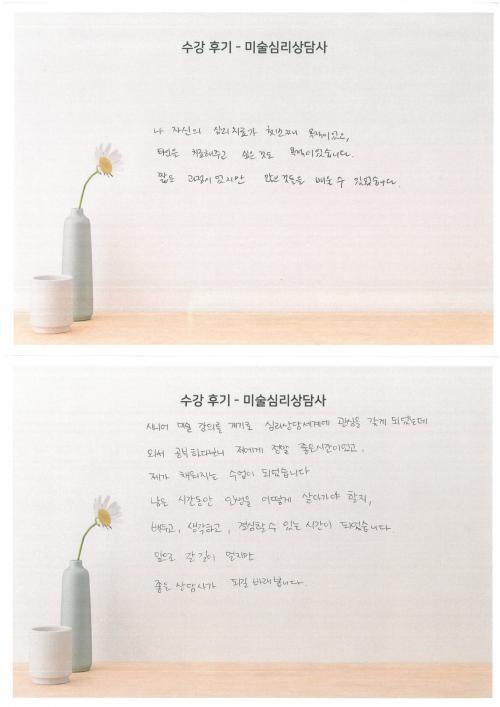 수강 후기 - 미술심리상담사
나 자신의 심리치료가 첫번째 목적이였고,
타인을 치료해주고 싶은 것도 목적이였습니다.
짧은 과정이였지만 많은 것들을 배울 수 있었습니다.
수강 후기 - 미술심리상담사
시니어 미술 강의를 계기로 심리상담세계에 관심을 갖게 되었는데
와서 공부하다보니 저에게 정말 좋은시간이였고,
제가 채워지는 수업이 되었습니다
남은 시간동안 인생을 어떻게 살아가야 할지,
배우고, 생각하고, 결심할 수 있는 시간이 되었습니다.
앞으로 갈 길이 멀지만
좋은 상담사가 되길 바래봅니다.